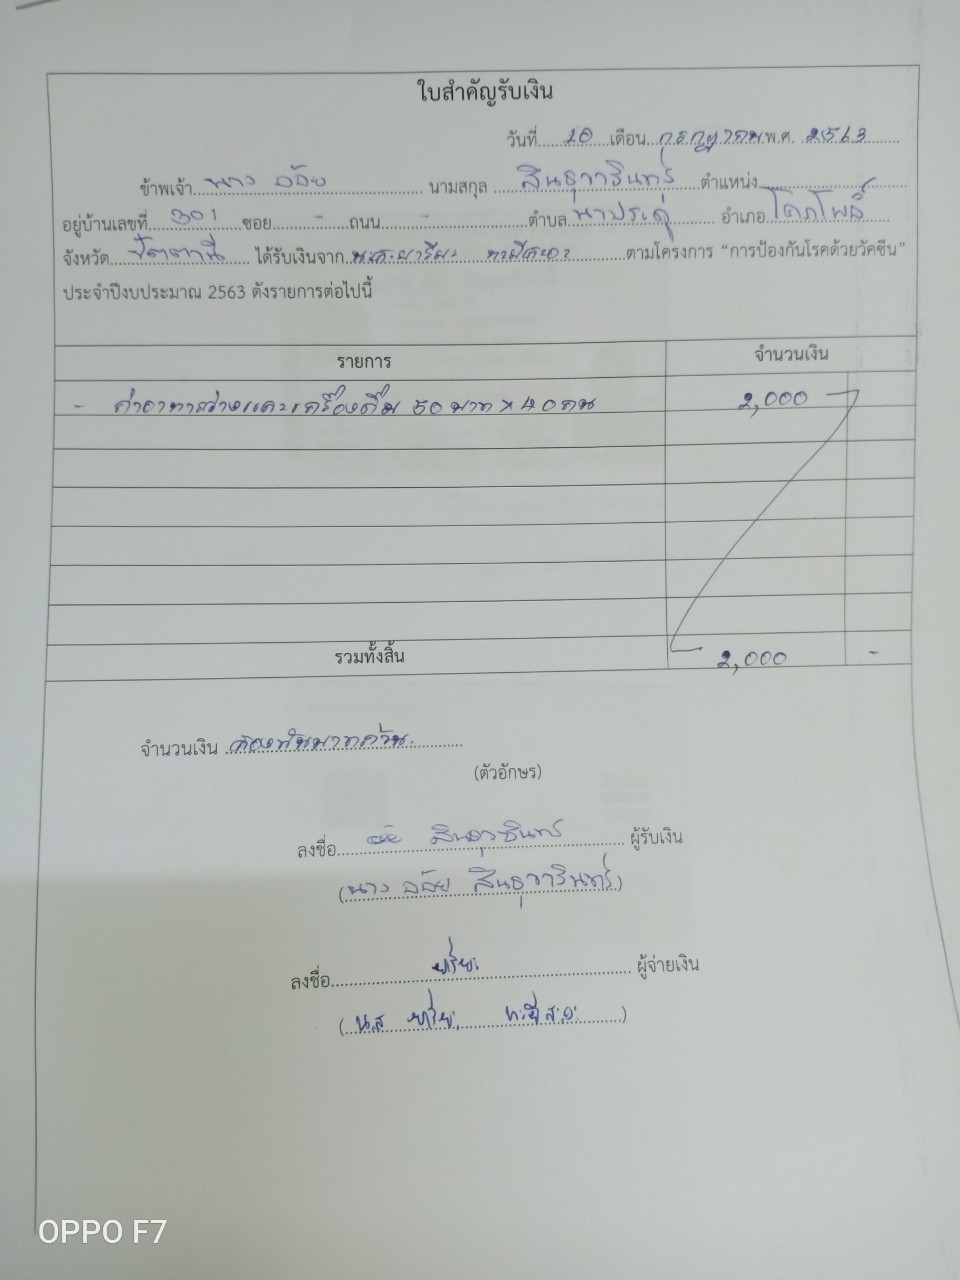 ใบสำคัญรับเงิน
วันที่ 10 เดือน กรกฎาคม พ.ศ. 2563
ข้าพเจ้า นาง อ้อย นามสกุล สินธุวารินทร์ ตำแหน่ง
อยู่บ้านเลขที่ 301 ซอย - ถนน - ตำบล นาประดู่ อำเภอ โคกโพธิ์
จังหวัด ปัตตานี ได้รับเงินจาก ตามโครงการ “การป้องกันโรคด้วยวัคซีน”
ประจำปีงบประมาณ 2563 ดังรายการต่อไปนี้
รายการ จำนวนเงิน
- ค่าอาหารว่างและเครื่องดื่ม 50 บาท x 40 คน 2,000 -
รวมทั้งสิ้น 2,000 -
จำนวนเงิน สองพันบาทถ้วน
(ตัวอักษร)
ลงชื่อ อ้อย สินธุวารินทร์ ผู้รับเงิน
(นาง อ้อย สินธุวารินทร์)
ลงชื่อ ผู้จ่ายเงิน
(น.ส )
OPPO F7